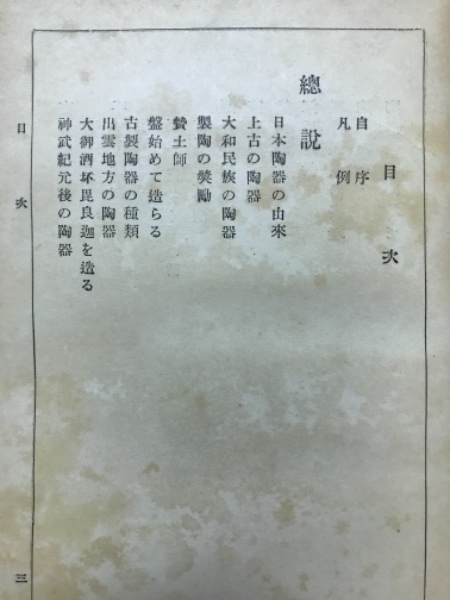 目次
自序
凡例
總説
日本陶器の由來
上古の陶器
大和民族の陶器
製陶の奬勵
贄土師
盤始めて造らる
古製陶器の種類
出雲地方の陶器
大御酒坏毘良迦を造る
神武紀元後の陶器
目次
三